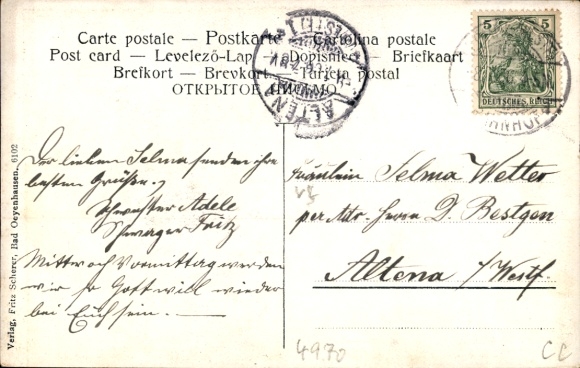 Carte postale — Postkarte — Cartolina postale
Post card — Levelező-Lap — Dopisnice — Briefkaart
Brefkort — Brevkort — Tarjeta postal
ОТКРЫТОЕ ПИСЬМО
5 5
DEUTSCHES REICH
ALTENA
Der lieben Selma senden ihre
besten Grüße.
Schwester Adele
Schwager Fritz
Mittwoch Vormittag werden
wir so Gott will wieder
bei Euch sein. —
Fräulein Selma Wetter
per Adr. Herrn D. Bestgen
Altena i/Westf.
Verlag, Fritz Scherer, Bad Oeynhausen. 6102
4970
CC